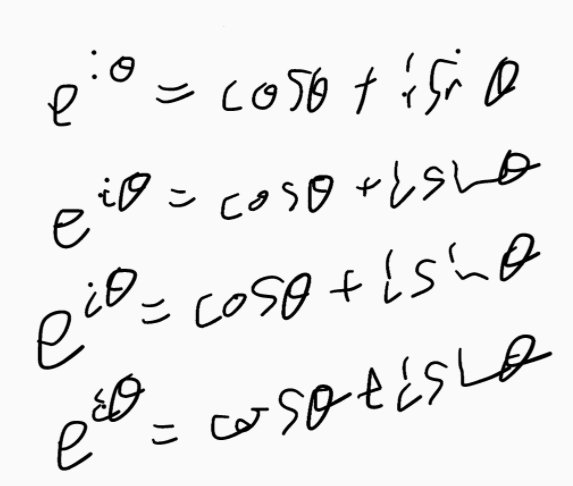 e^{iθ} = cosθ + isin θ
e^{iθ} = cosθ + isinθ
e^{iθ} = cosθ + isinθ
e^{iθ} = cosθ + isinθ